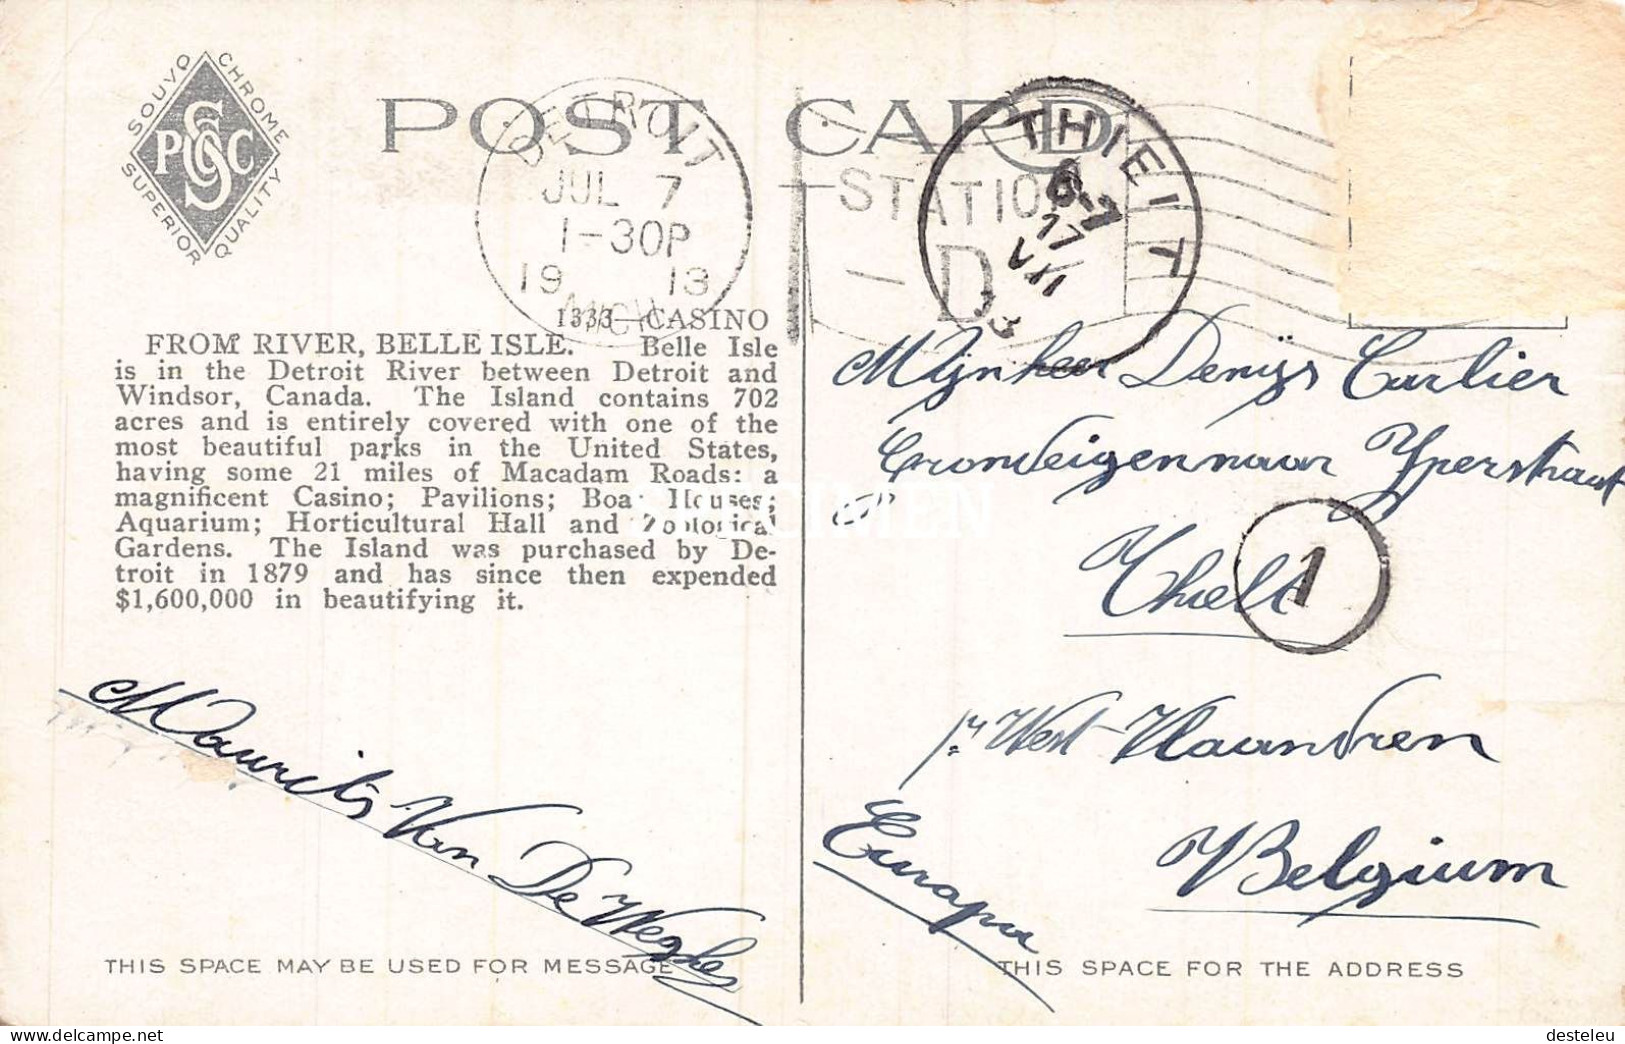 SOUVO CHROME
SUPERIOR QUALITY
PSCC
POST CARD
DETROIT
JUL 7
1-30P
19 13
MICH.
STATION
D
THIELT
6-7
17
VII
13
1333—CASINO
FROM RIVER, BELLE ISLE. Belle Isle
is in the Detroit River between Detroit and
Windsor, Canada. The Island contains 702
acres and is entirely covered with one of the
most beautiful parks in the United States,
having some 21 miles of Macadam Roads: a
magnificent Casino; Pavilions; Boat Houses;
Aquarium; Horticultural Hall and Zoological
Gardens. The Island was purchased by De-
troit in 1879 and has since then expended
$1,600,000 in beautifying it.
SPECIMEN
Mijnheer Denijs Carlier
Grondeigennaar Yperstraat
Thielt
1
West-Vlaandren
Belgium
Europa
Maurits Van De
THIS SPACE MAY BE USED FOR MESSAGE
THIS SPACE FOR THE ADDRESS
www.delcampe.net
desteleu